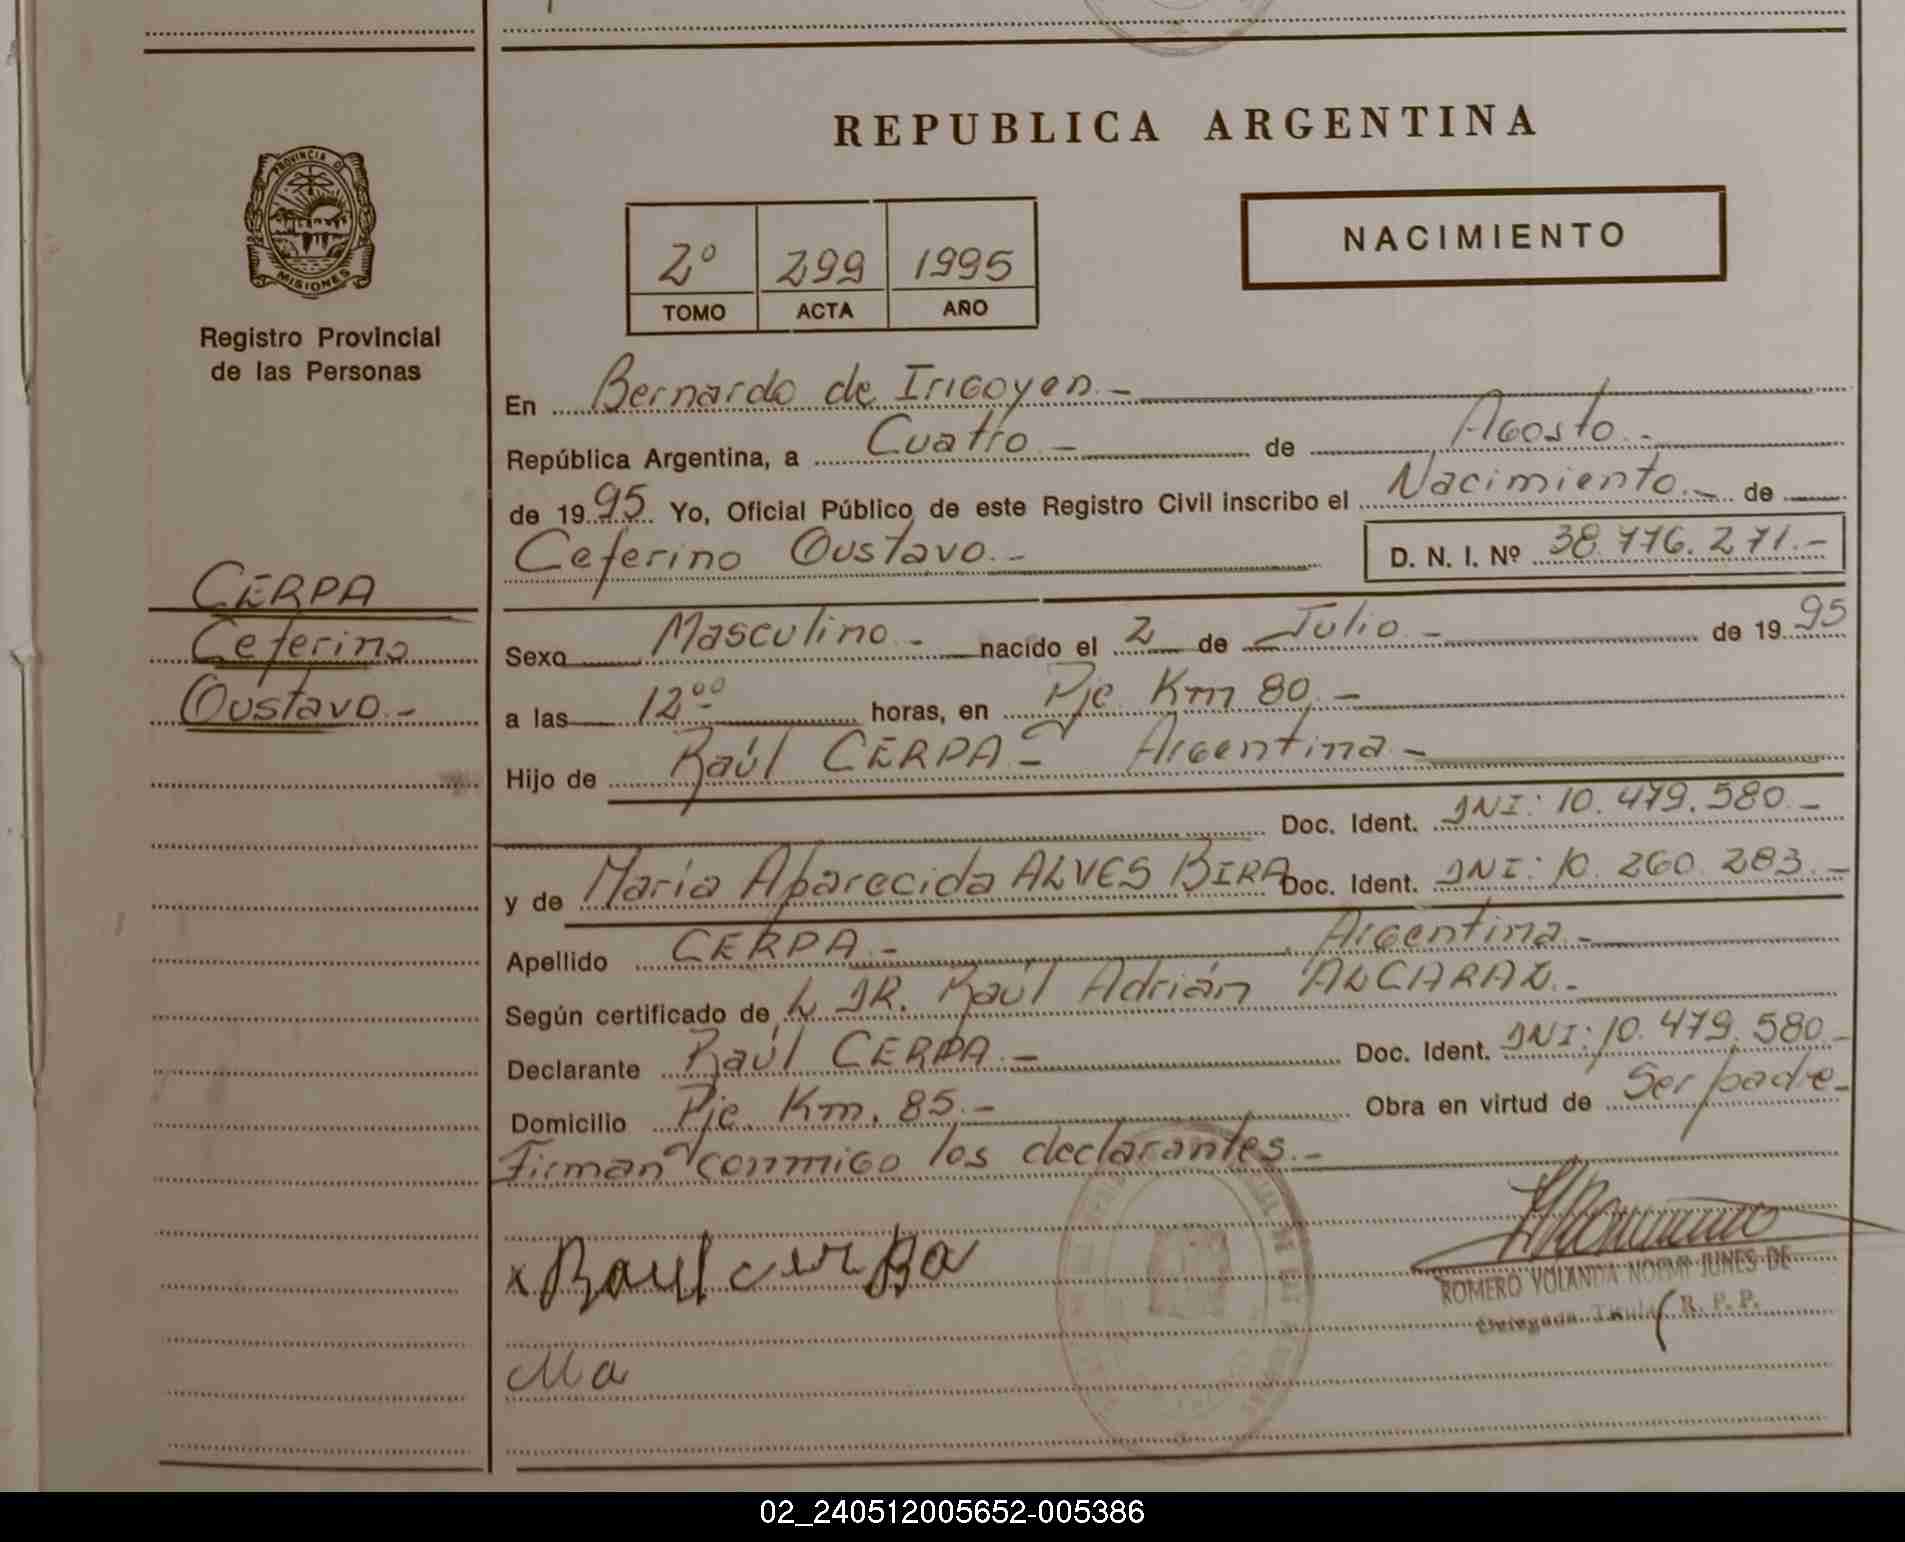 REPUBLICA ARGENTINA
PROVINCIA DE
MISIONES
Registro Provincial
de las Personas
2º 299 1995
TOMO ACTA AÑO
NACIMIENTO
En Bernardo de Irigoyen.-
República Argentina, a Cuatro.- de Agosto.-
de 1995 Yo, Oficial Público de este Registro Civil inscribo el Nacimiento.- de
Ceferino Gustavo.- D. N. I. Nº 38.776.271.-
CERPA
Ceferino
Gustavo.-
Sexo Masculino.- nacido el 2 de Julio.- de 1995
a las 12⁰⁰ horas, en Pje Km 80.-
Hijo de Raúl CERPA.- Argentina.-
Doc. Ident. DNI: 10.479.580.-
y de María Aparecida ALVES BIRA Doc. Ident. DNI: 10.260.283.-
Apellido CERPA.- Argentina.-
Según certificado de DR. Raúl Adrián ALCARAZ.-
Declarante Raúl CERPA.- Doc. Ident. DNI: 10.479.580.-
Domicilio Pje. Km. 85.- Obra en virtud de Ser padre.-
Firman conmigo los declarantes.-
x Raul cerpa
ROMERO YOLANDA NOEMI JUNES DE
Delegada Titular R. P. P.
Ma
02_240512005652-005386